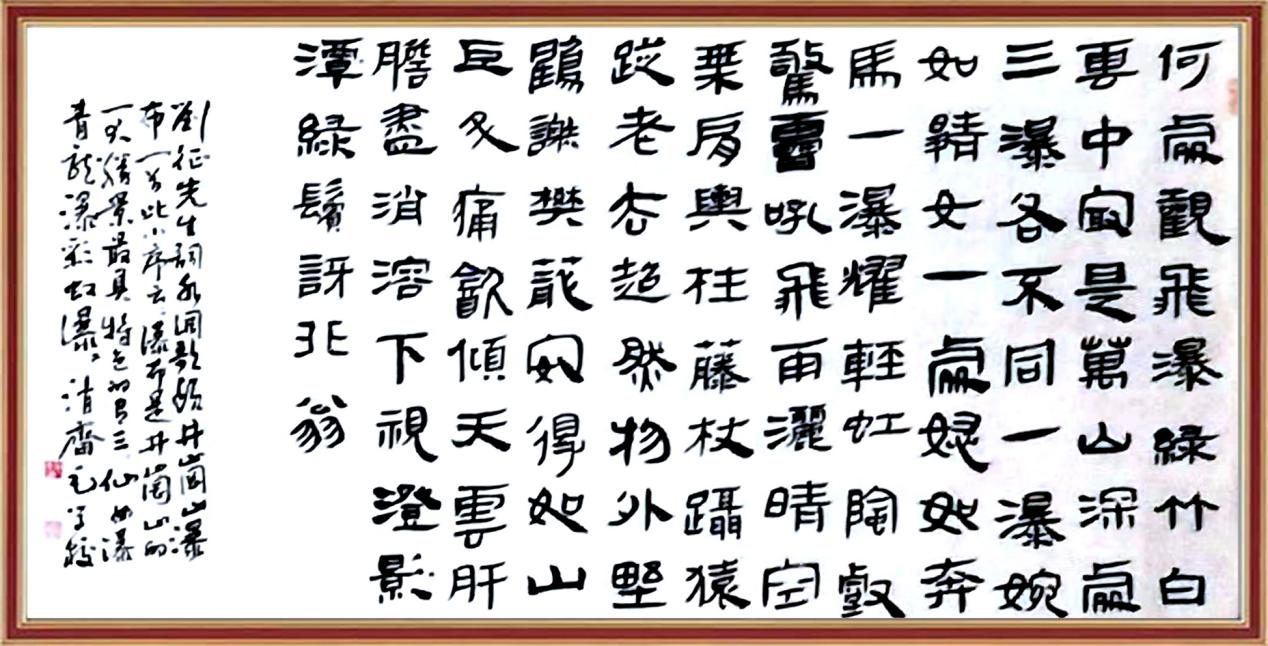 何處觀飛瀑綠竹白
雲中㝡是萬山深處
三瀑各不同一瀑婉
如靜女一處怒如奔
馬一瀑耀輕虹陶叡
驚雷吼飛雨灑晴空
乘肩輿柱藤杖躡猿
蹤老去超然物外野
鶴謝樊蘢安得如山
巨痛飲傾天雲肝
膽盡消溶下視澄影
潭綠鬢訝非翁
劉征先生詞水調歌頭井岡山瀑
布一首此小序云瀑布是井岡山的
一大勝景最具特色的有三仙女瀑
青龍瀑彩虹瀑清齋毛